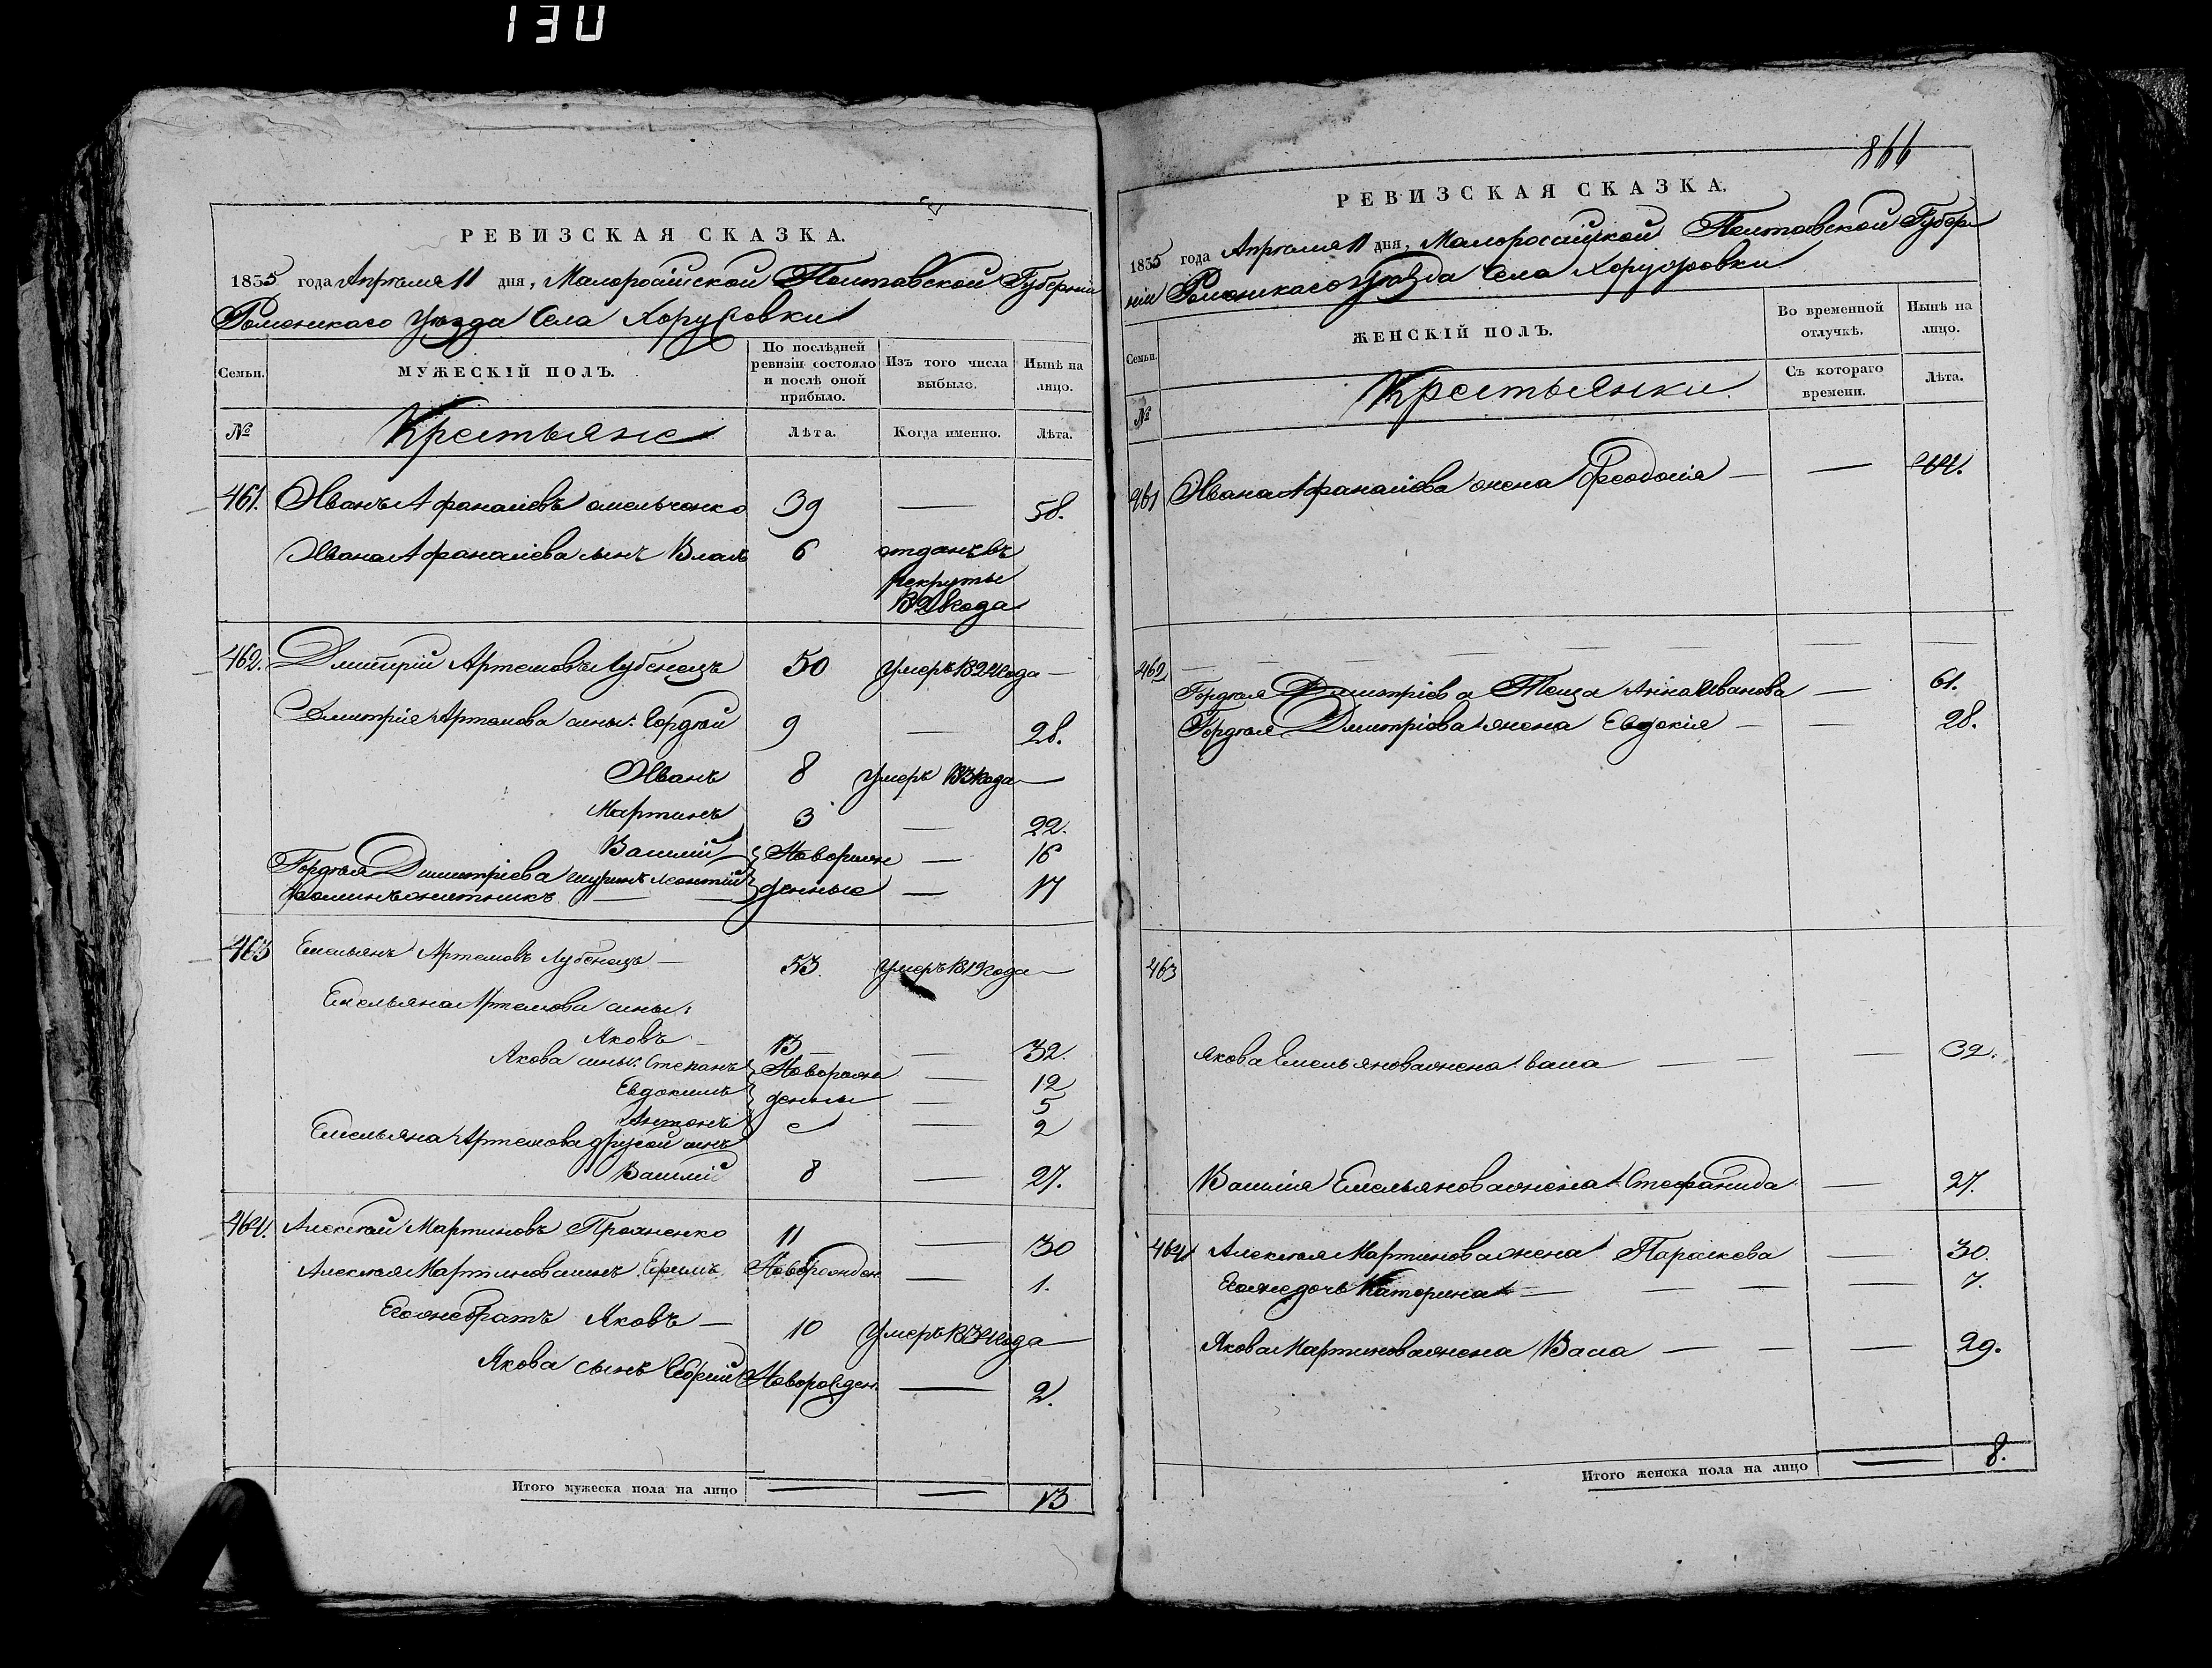 130
РЕВИЗСКАЯ СКАЗКА.
1835 года Апреля 11 дня, Малоросійской Полтавской Губерніи
Роменскаго Уѣзда Села Хоружовки
Семьи.
МУЖЕСКІЙ ПОЛЪ.
По послѣдней ревизіи состояло и послѣ оной прибыло.
Изъ того числа выбыло.
Нынѣ на лицо.
№
Крестьяне
Лѣта.
Когда именно.
Лѣта.
461. Иванъ Афанасіевъ омельченко 39 — 58.
Ивана Афанасіева сынъ Власъ 6 отданъ въ
рекруты
1828 года
462. Дмитрій Артемовъ Лубенецъ 50 Умеръ 1824 года —
Дмитрія Артемова сыны: Гордѣй 9 — 28.
Иванъ 8 Умеръ 1831 года —
Мартинъ 3 — 22.
Василій Новорож — 16
Гордѣя Димитріева шуринъ Леонтій денные — 17
463 Емельянъ Артемовъ Лубенецъ — 53. Умеръ 1819 года —
Емельяна Артемова сыны:
Яковъ 13 — 32.
Якова сыны: Степанъ Новорож — 12
Евдокимъ денны — 5
Антонъ е — 2
Емельяна Артемова другой сынъ
Василій 8 — 27.
464. Алексѣй Мартиновъ 11 — 30
Алексѣя Мартинова сынъ Ефимъ Новорожден — 1.
Егожебратъ Яковъ — 10 Умеръ 1834 года —
Якова сынъ Новорожден. — 2.
Итого мужеска пола на лицо — — 13
866
РЕВИЗСКАЯ СКАЗКА.
1835 года Апреля 11 дня, Малоросійской Полтавской Губер
ніи Роменскаго Уѣзда Села Хоружовки
Семьи.
ЖЕНСКІЙ ПОЛЪ.
Во временной отлучкѣ.
Нынѣ на лицо.
№
Крестьянки.
Съ котораго времени.
Лѣта.
461 Ивана Афанасіева жена Феодосія — — 44.
462 — — — — — — — —
Гордѣя Димитріева Теща Анна Иванова — 61.
Гордѣя Дмитріева жена Евдокія — — 28.
463
Якова Емельянова жена васа — — — 32.
Василія Емельянова жена Стефанида — 27.
464 Алексѣя Мартинова жена Параскева — 30.
Егожедочь Катерина — — — — 7.
Якова Мартинова жена Васа — — — 29.
Итого женска пола на лицо — 8.